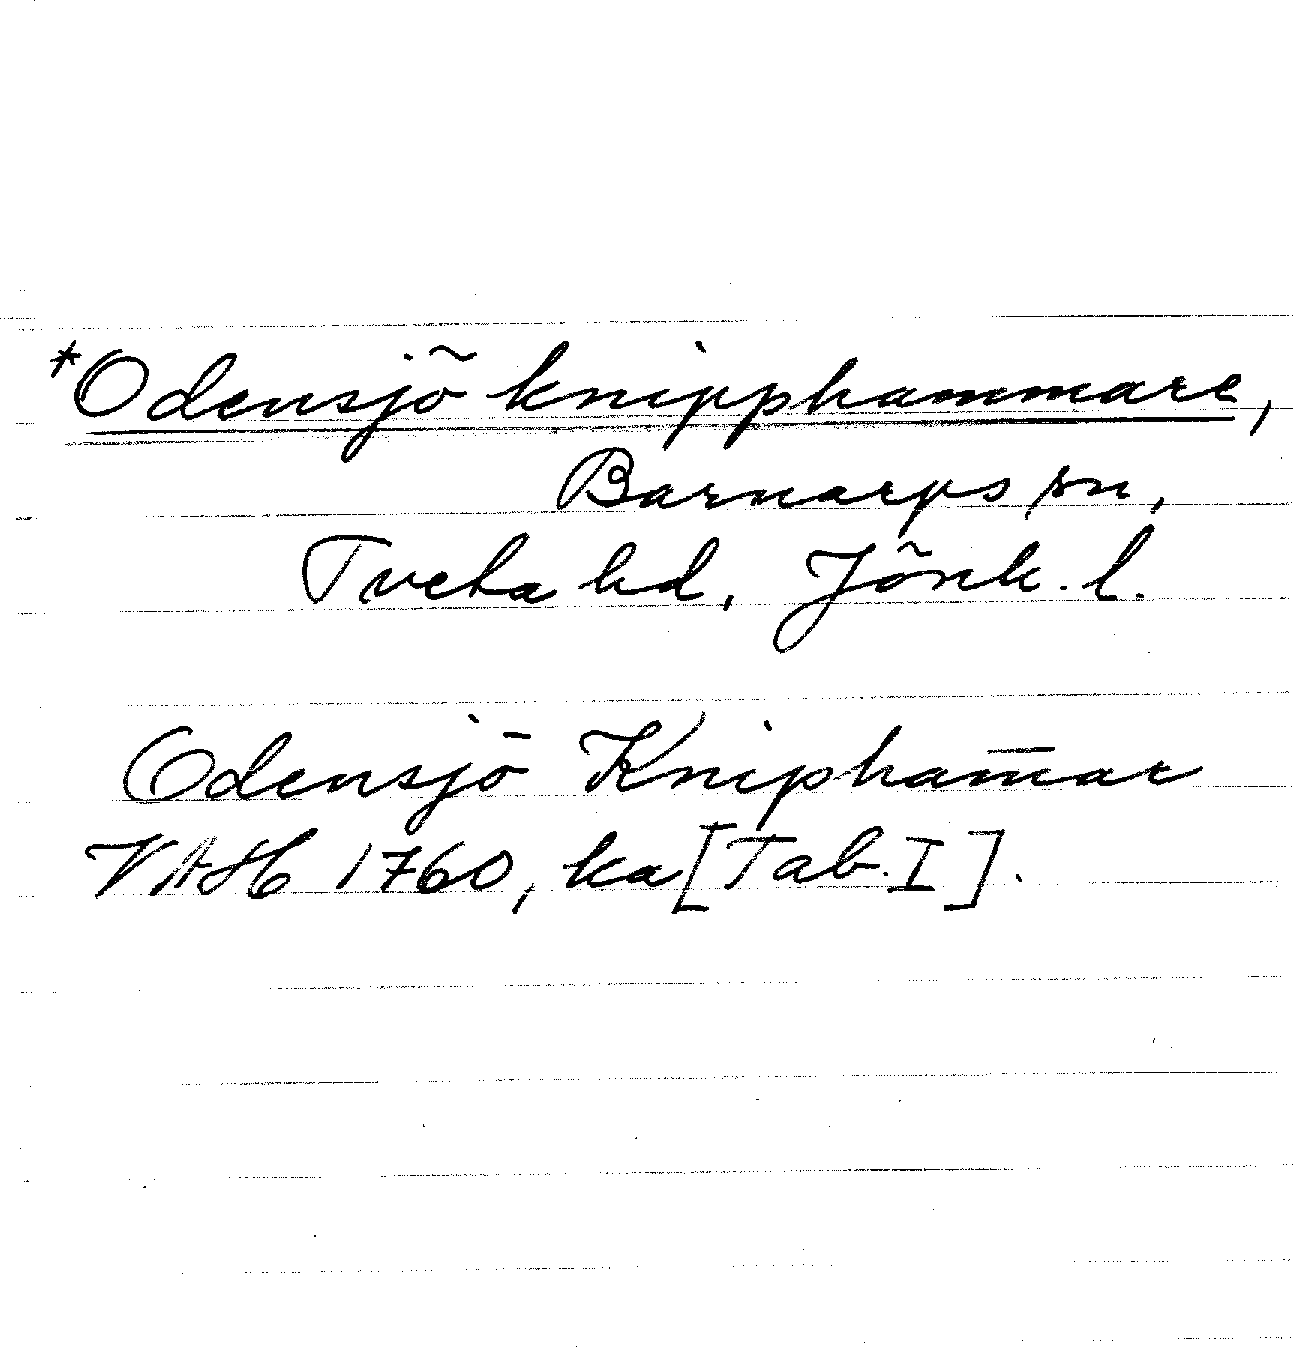 *Odensjö knipphammare,
Barnarps sn,
Tveta hd, Jönk. l.
Odensjö Knipham̄ar
VAH 1760, ka [Tab. I].